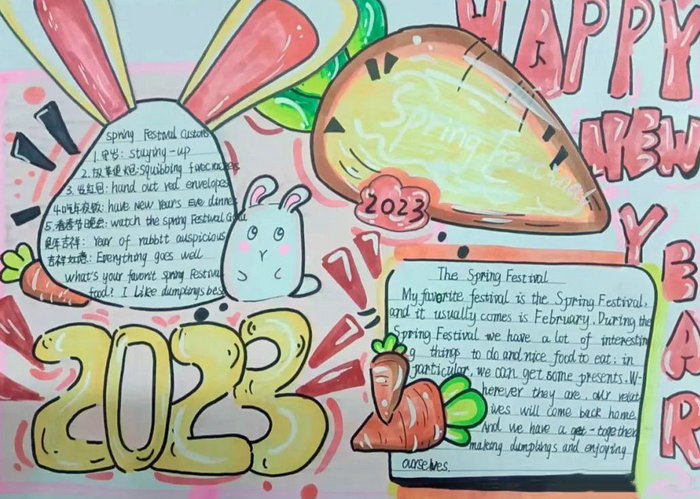 HAPPY
NEW
YEAR
Spring Festival
2023
Spring Festival Customs
1.守岁: staying-up
2.放草便火包: Squibbing firecrackers
3.发红包: hand out red envelopes
4.吃年夜饭: have New Years Eve dinner
5.看春节晚会: watch the spring Festival Gala
兔年吉祥: Year of rabbtt auspicious
吉祥如意: Everything goes well
what's your favorit spring Festival
food? I Like dumplings best
2023
The Spring Festival
My favorite festival is the Spring Festival,
and it usually comes is February. During the
Spring Festival we have a lot of interestin
g things to do and nice food to eat. in
particular, we can get some presents. W-
herever they are, our relat
ives will come back home.
And we have a get-together
making dumplings and enjoying
ourselves.